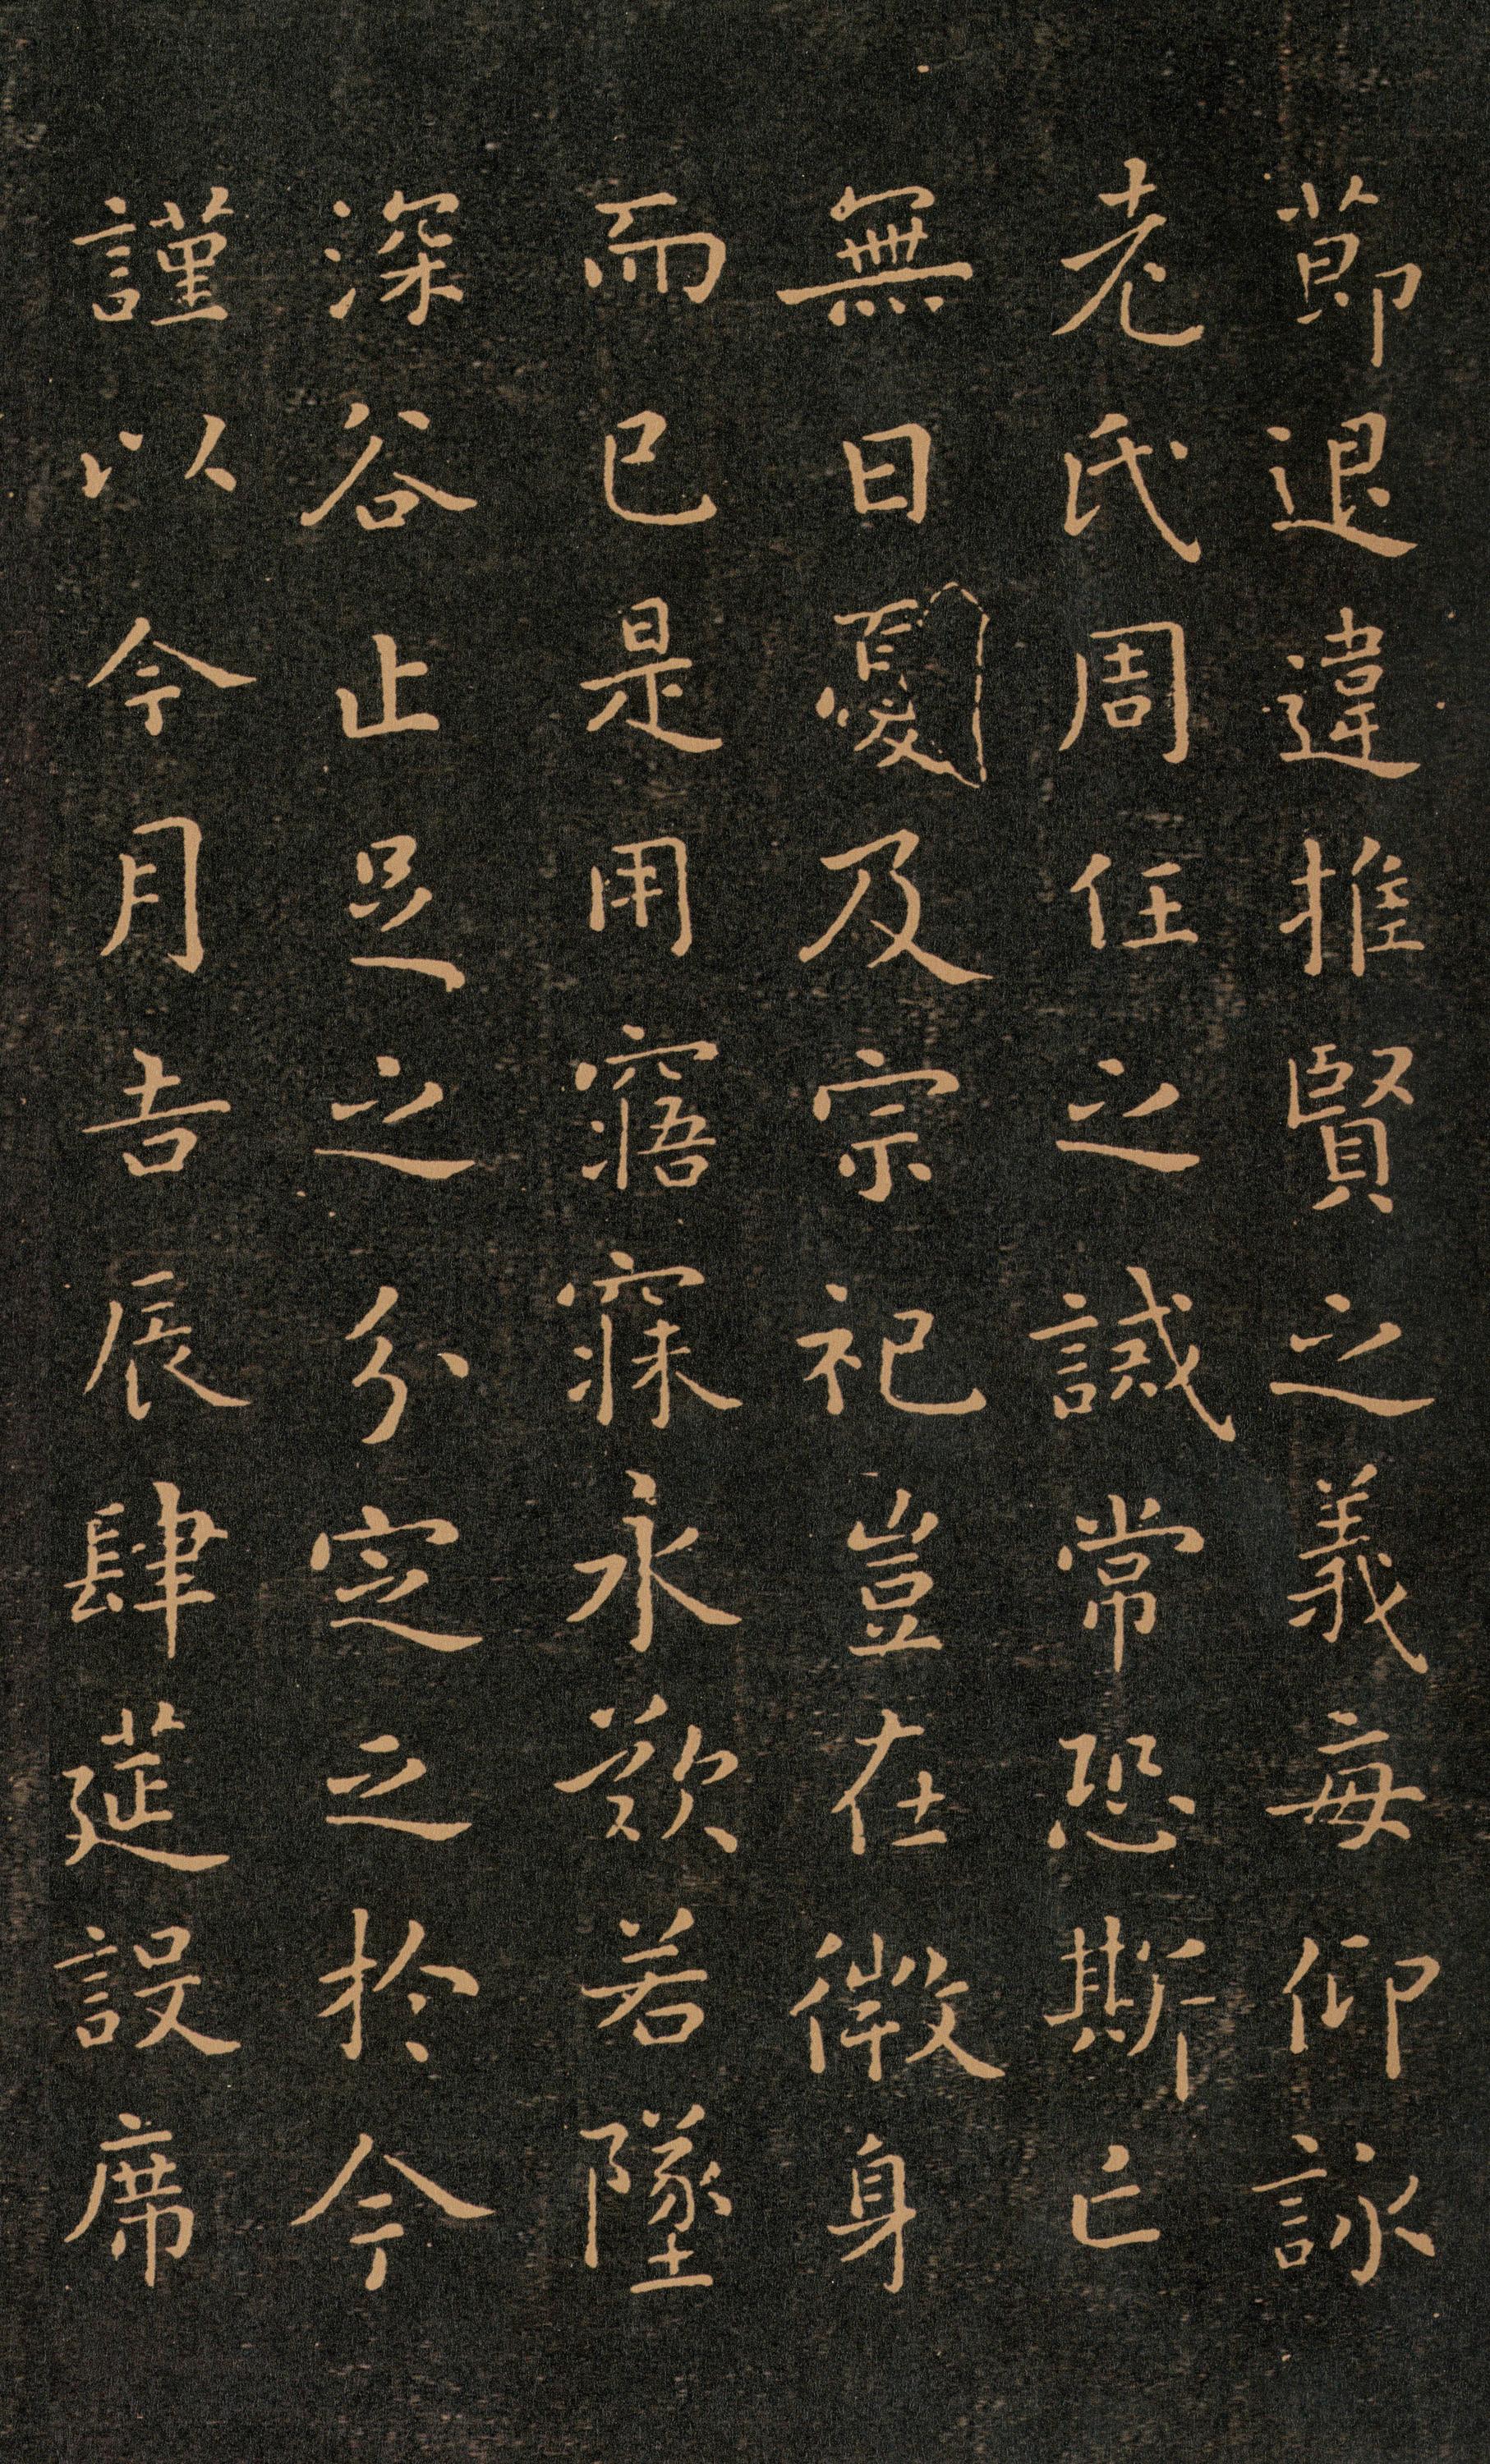 莭退違推賢之義每仰詠
老氏周任之誡常恐斯亡
無日憂及宗祀豈在微身
而已是用寤寐永歎若墜
深谷止足之分定之於今
謹以今月吉辰肆莚設席